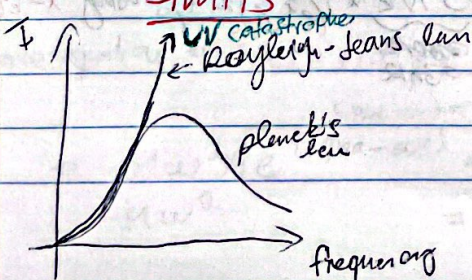 I
UV catastrophe
Rayleigh-Jeans law
planck's
law
frequency